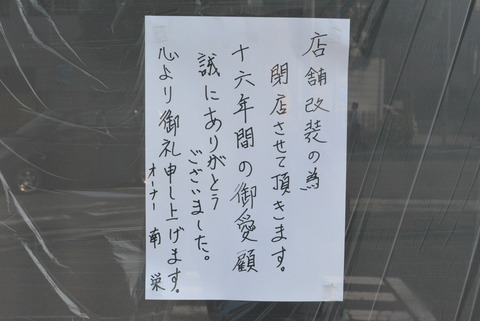 店舗改装の為
閉店させて頂きます。
十六年間の御愛顧
誠にありがとう
ございました。
心より御礼申し上げます。
オーナー 南 栄